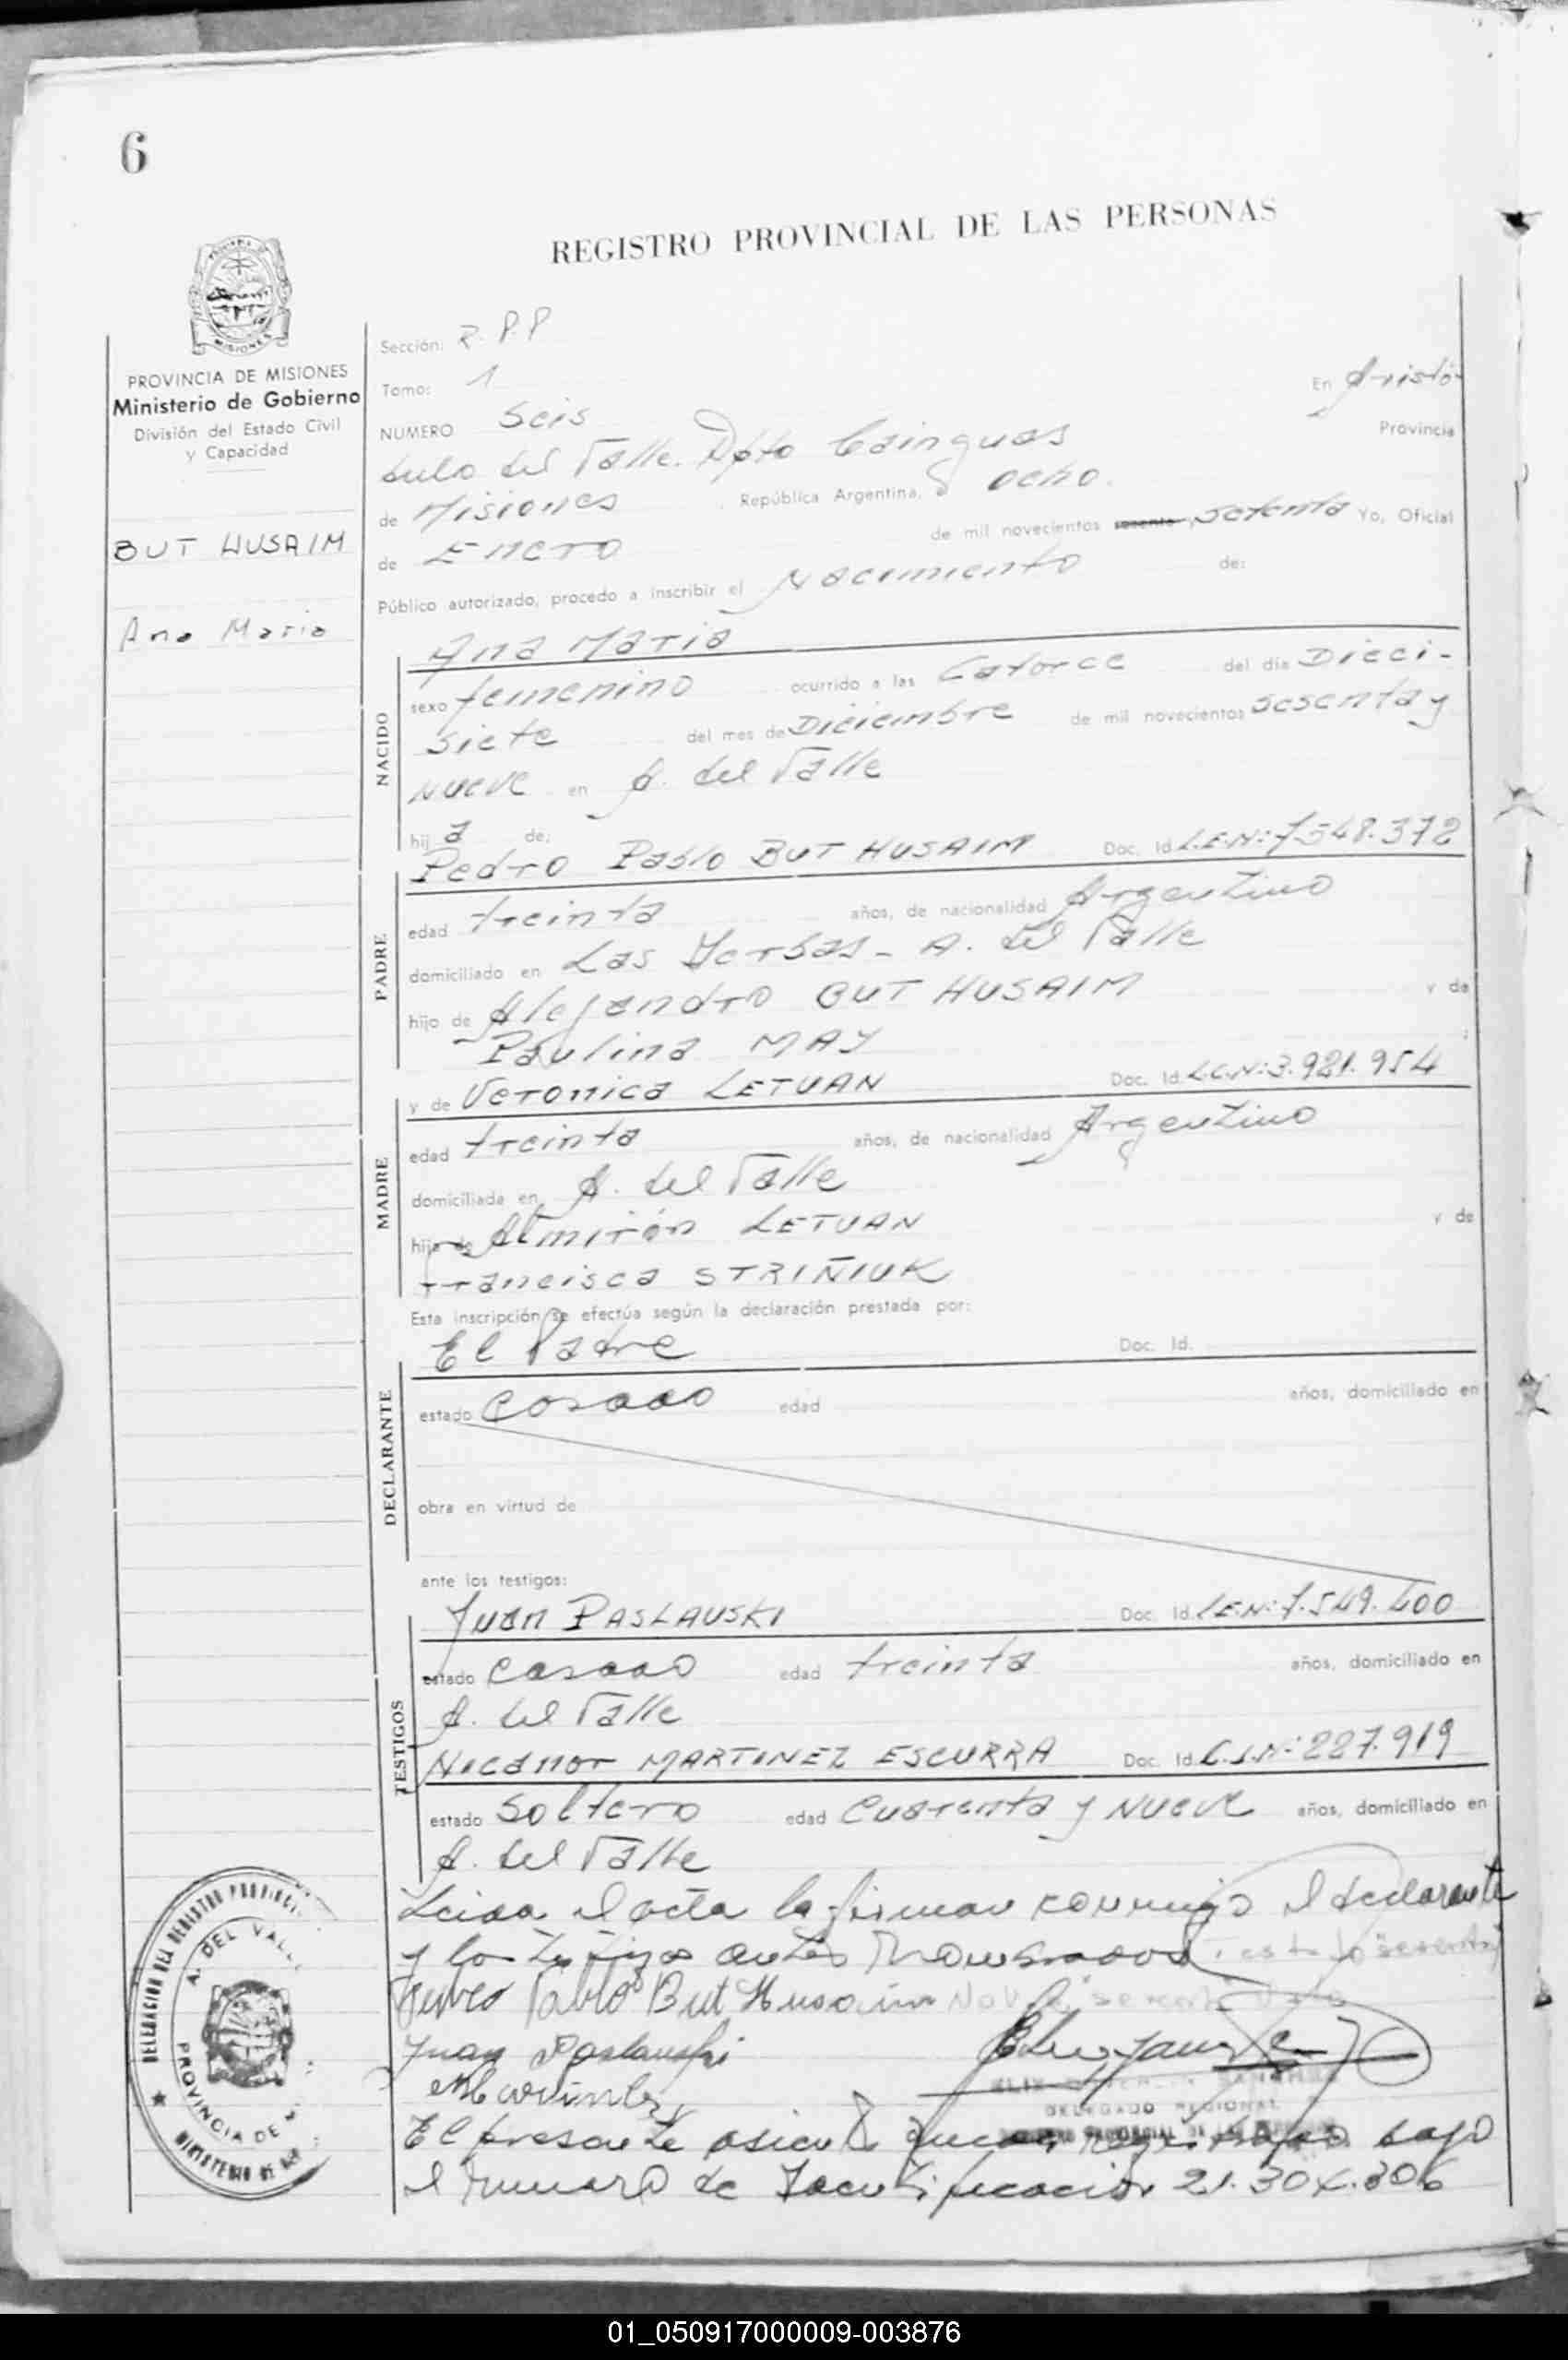 6
REGISTRO PROVINCIAL DE LAS PERSONAS
MISIONES
PROVINCIA DE MISIONES
Ministerio de Gobierno
División del Estado Civil
y Capacidad
BUT HUSAIM
Ana Maria
Sección: R.P.P
Tomo: 1 En Aristó-
NUMERO Seis Provincia
bulo del Valle. Dpto Cainguas
de Misiones República Argentina, a ocho.
de Enero de mil novecientos sesenta y setenta Yo, Oficial
Público autorizado, procedo a inscribir el Nacimiento de:
NACIDO
Ana Maria
sexo femenino ocurrido a las Catorce del día Dieci-
siete del mes de Diciembre de mil novecientos sesenta y
nueve en A. del Valle
hija de:
PADRE
Pedro Pablo BUT HUSAIM Doc. Id. L.E.N: 7.548.372
edad treinta años, de nacionalidad Argentino
domiciliado en Las Yerbas - A. del Valle
hijo de Alejandro BUT HUSAIM y de
Paulina MAY ;
MADRE
y de Veronica LETUAN Doc. Id. L.C.N: 3.921.954
edad treinta años, de nacionalidad Argentino
domiciliada en A. del Valle
hija de Almirón LETUAN y de
Francisca STRIÑIUK
Esta inscripción se efectúa según la declaración prestada por:
DECLARANTE
El Padre Doc. Id.
estado Casado edad años, domiciliado en
obra en virtud de
ante los testigos:
TESTIGOS
Juan PASLAUSKI Doc. Id. L.E.N: 7.549.400
estado Casado edad treinta años, domiciliado en
A. del Valle
Nicanor MARTINEZ ESCURRA Doc. Id. C.I.N: 227.919
estado Soltero edad Cuarenta y Nueve años, domiciliado en
A. del Valle
Leida el acta la firman conmigo el declarante
y los testigos antes nombrados
Pedro Pablo But Husaim
Juan Paslauski
DELEGADO REGIONAL
El presente asiento queda registrado bajo
el numero de Identificación 21.304.306
DELEGACION DEL REGISTRO PROVINCIAL
A. DEL VALLE
PROVINCIA DE
MINISTERIO DE
01_050917000009-003876